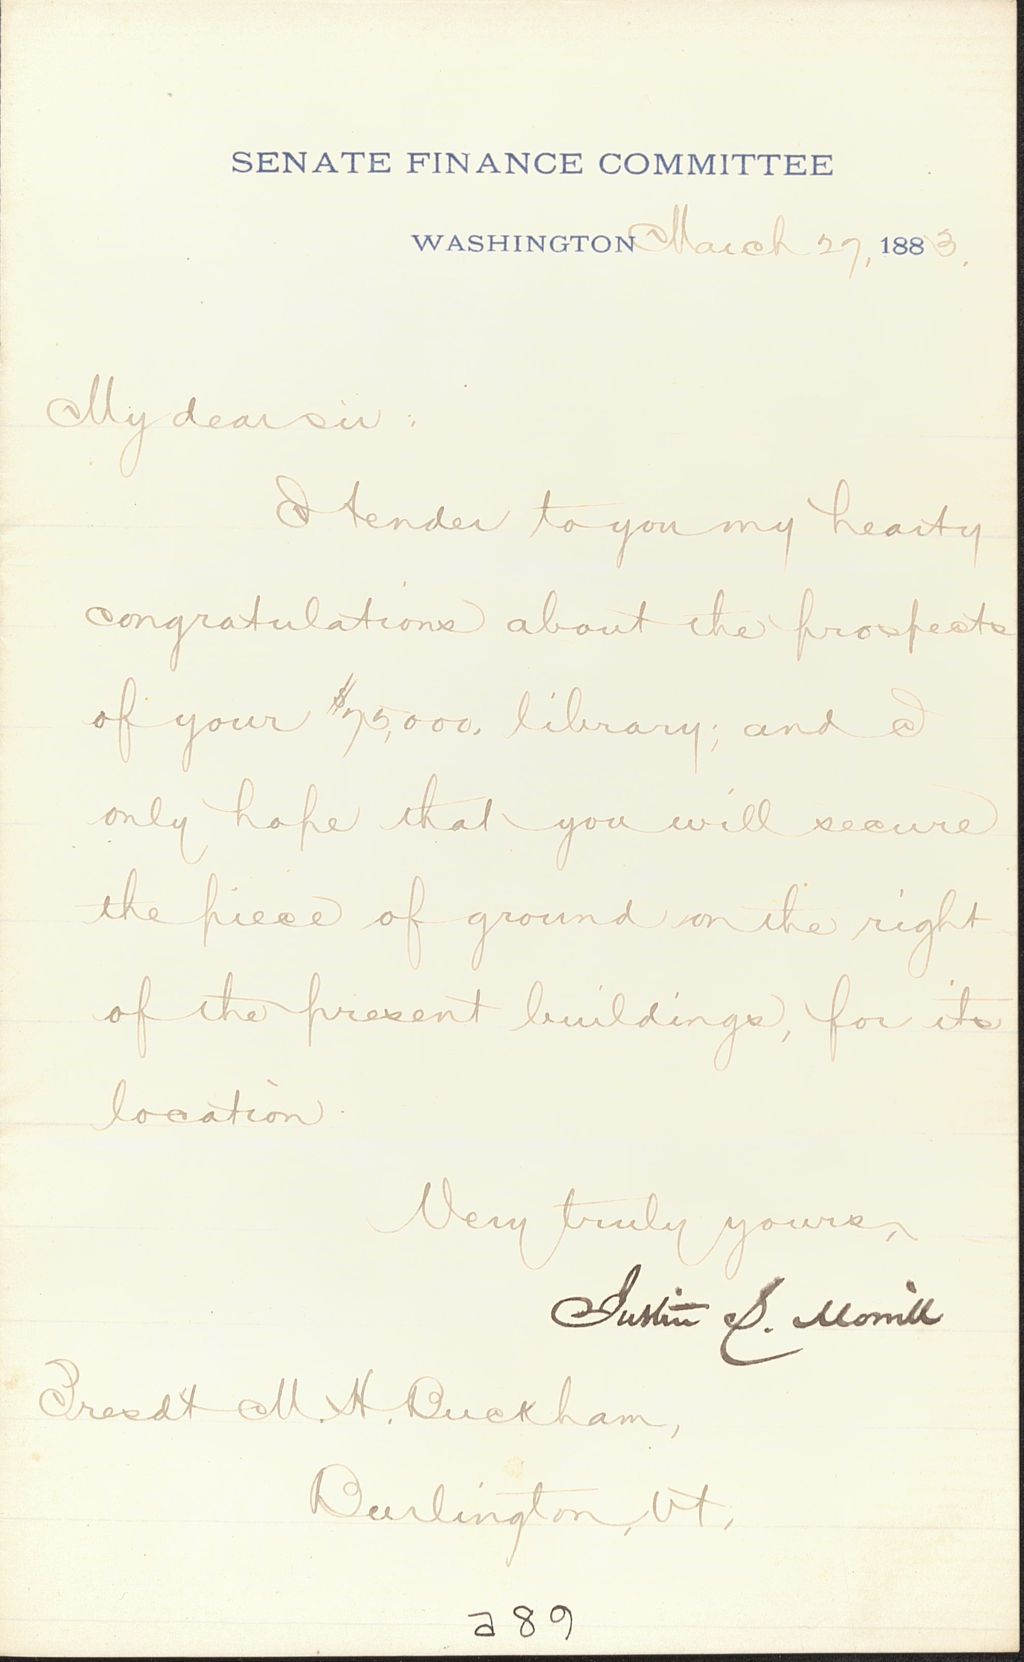 SENATE FINANCE COMMITTEE
WASHINGTON March 27, 1883.
My dear sir:
I tender to you my hearty
congratulations about the prospects
of your $75,000. library; and I
only hope that you will secure
the piece of ground on the right
of the present buildings, for its
location
Very truly yours,
Justin S. Morrill
Presdt M. H. Buckham,
Burlington, Vt.
a89